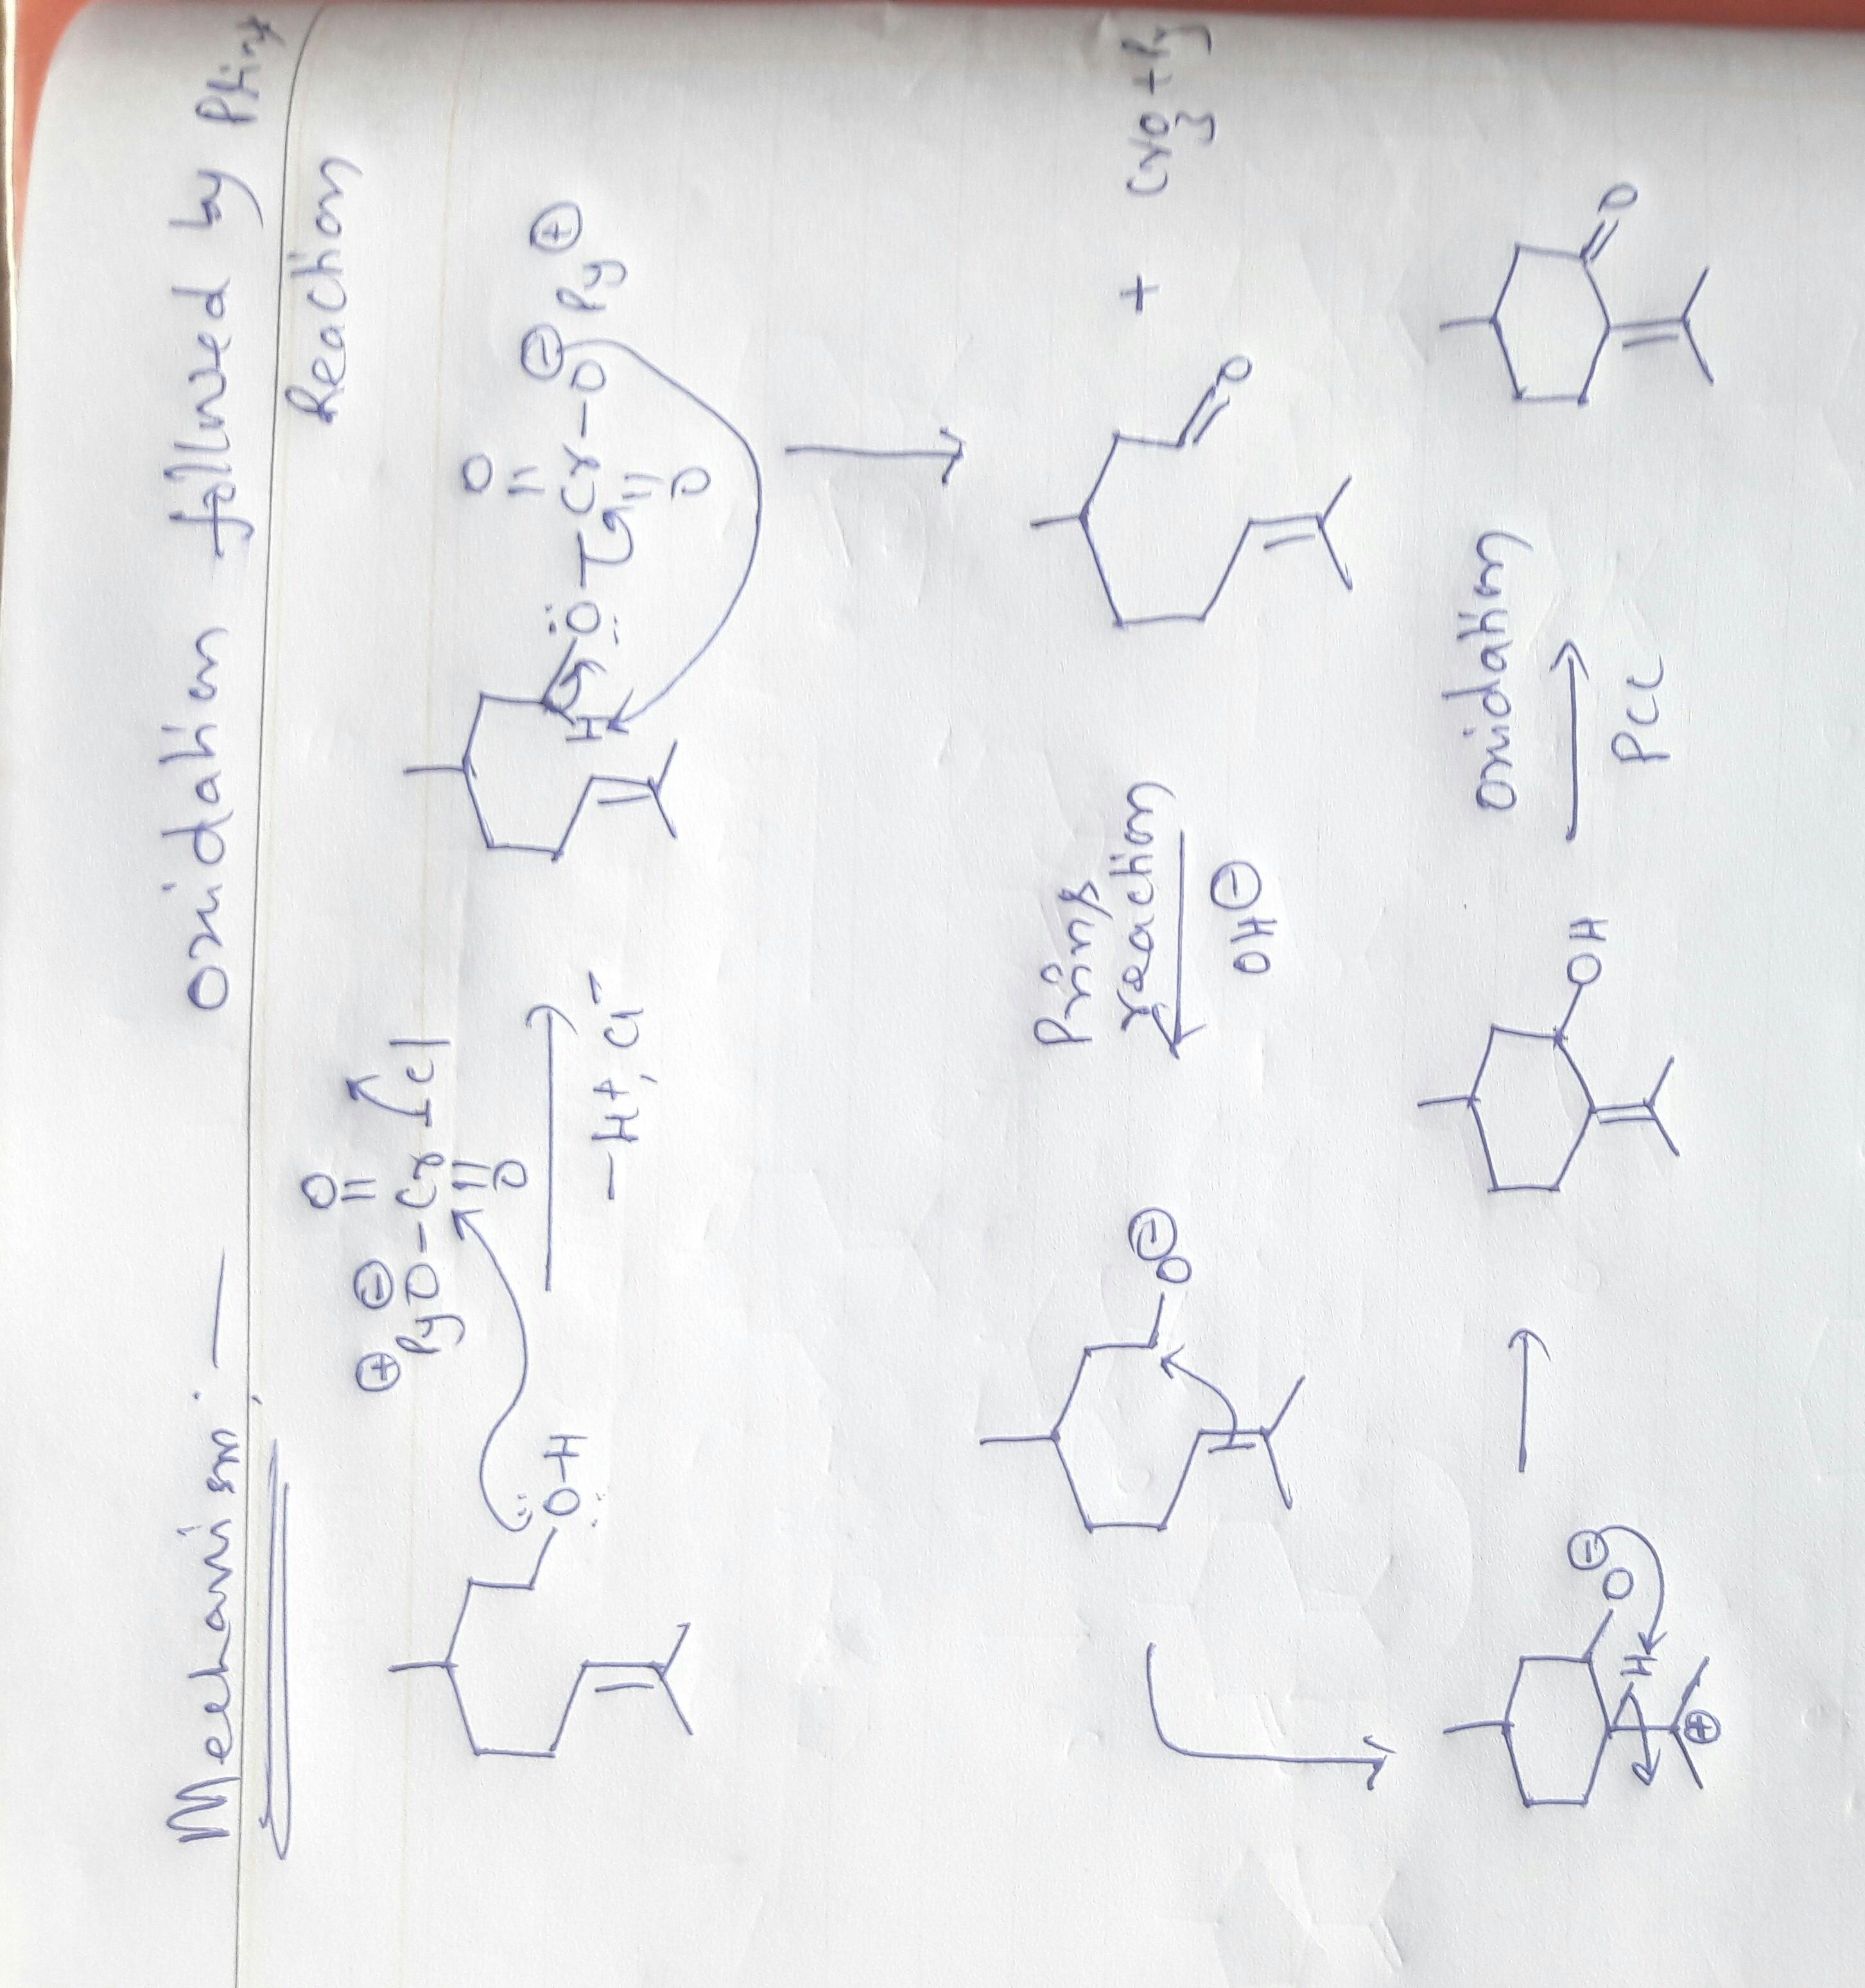 Mechanism :— oxidation followed by Prins
Reaction
O
⊕ ⊖
PyO-Cr-Cl
O
O-H
-H+, Cl-
O
O-Cr-O⊖ Py⊕
O
H
O
+ CrO3 + Py
Prins
reaction
OH⊖
O⊖
H
O⊖
⊕
OH
oxidation
PCC
O